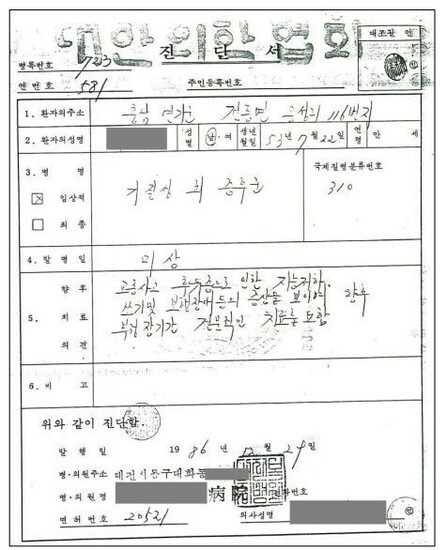 대한의학협회
진 단 서
대조필 인
병록번호 723
연번호 581 주민등록번호
1. 환자의주소 충남 연기군 전동면 116번지
2. 환자의성명 성별 남·여 생년월일 53년 7월 22일 연령 만 세
3. 병 명 국제질병분류번호
☒ 임상적 기질성 뇌 증후군 310
☐ 최종
4. 발 병 일 미상
향 후 교통사고 후유증으로 인한 지능저하,
쓰기및 보행장애 등의 증상을 보이며 향후
5. 치 료 장기간 전문적인 치료를 요함
의 견
6. 비 고
위와 같이 진단함.
발 행 일 1986년 12월 29일
병·의원주소 대전시동구대화동
병·의원명 病院
면허번호 20521 의사성명